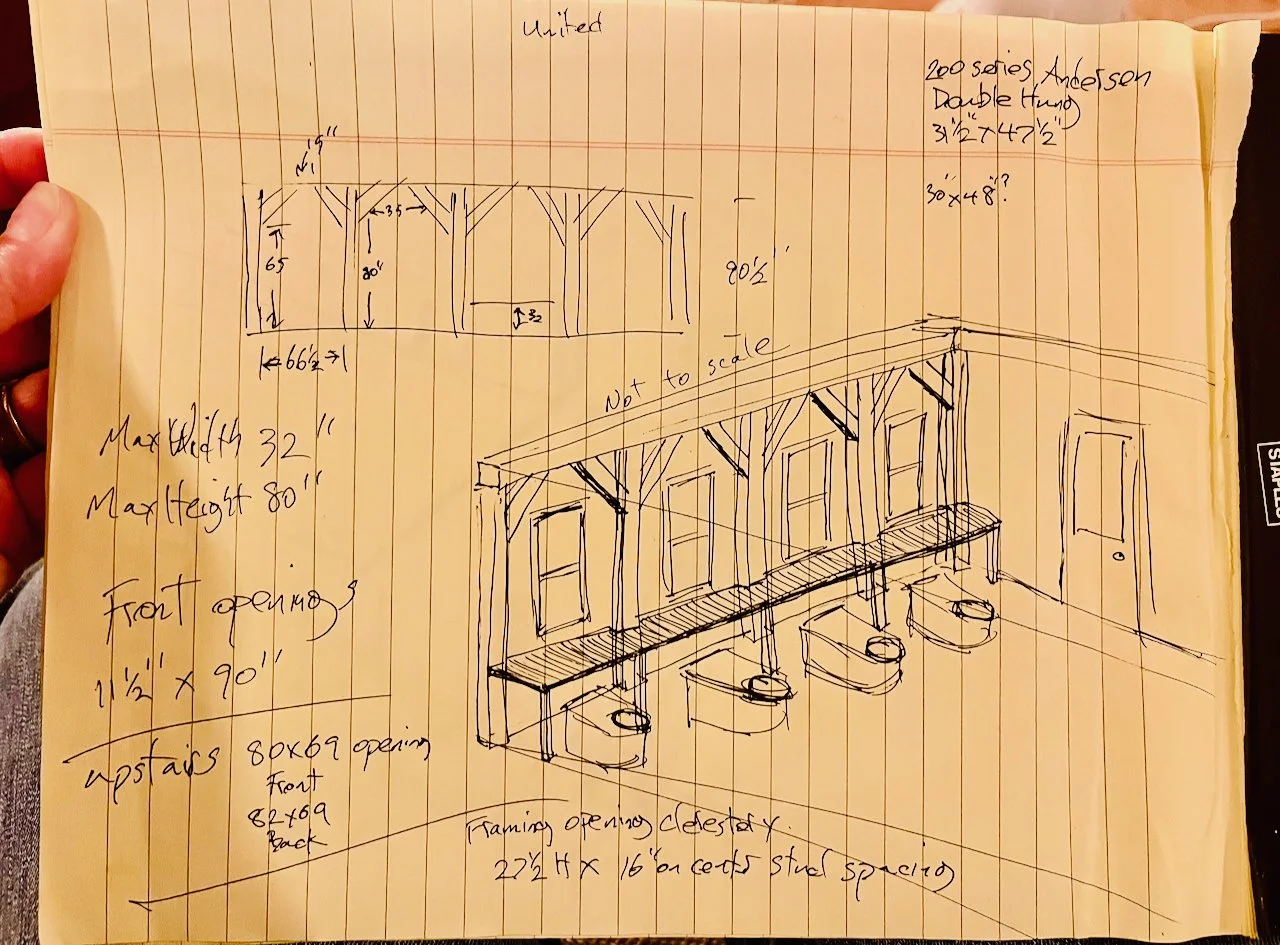 United
200 series Andersen
Double Hung
31½" x 47½"
30" x 48"?
19"
35
65
80"
32
66½
90½"
Not to scale
Max Width 32"
Max Height 80"
Front openings
11½" x 90"
upstairs 80x69 opening
Front
82x69
Back
Framing opening clerestory.
27½ H x 16" on center stud spacing
STAPLES